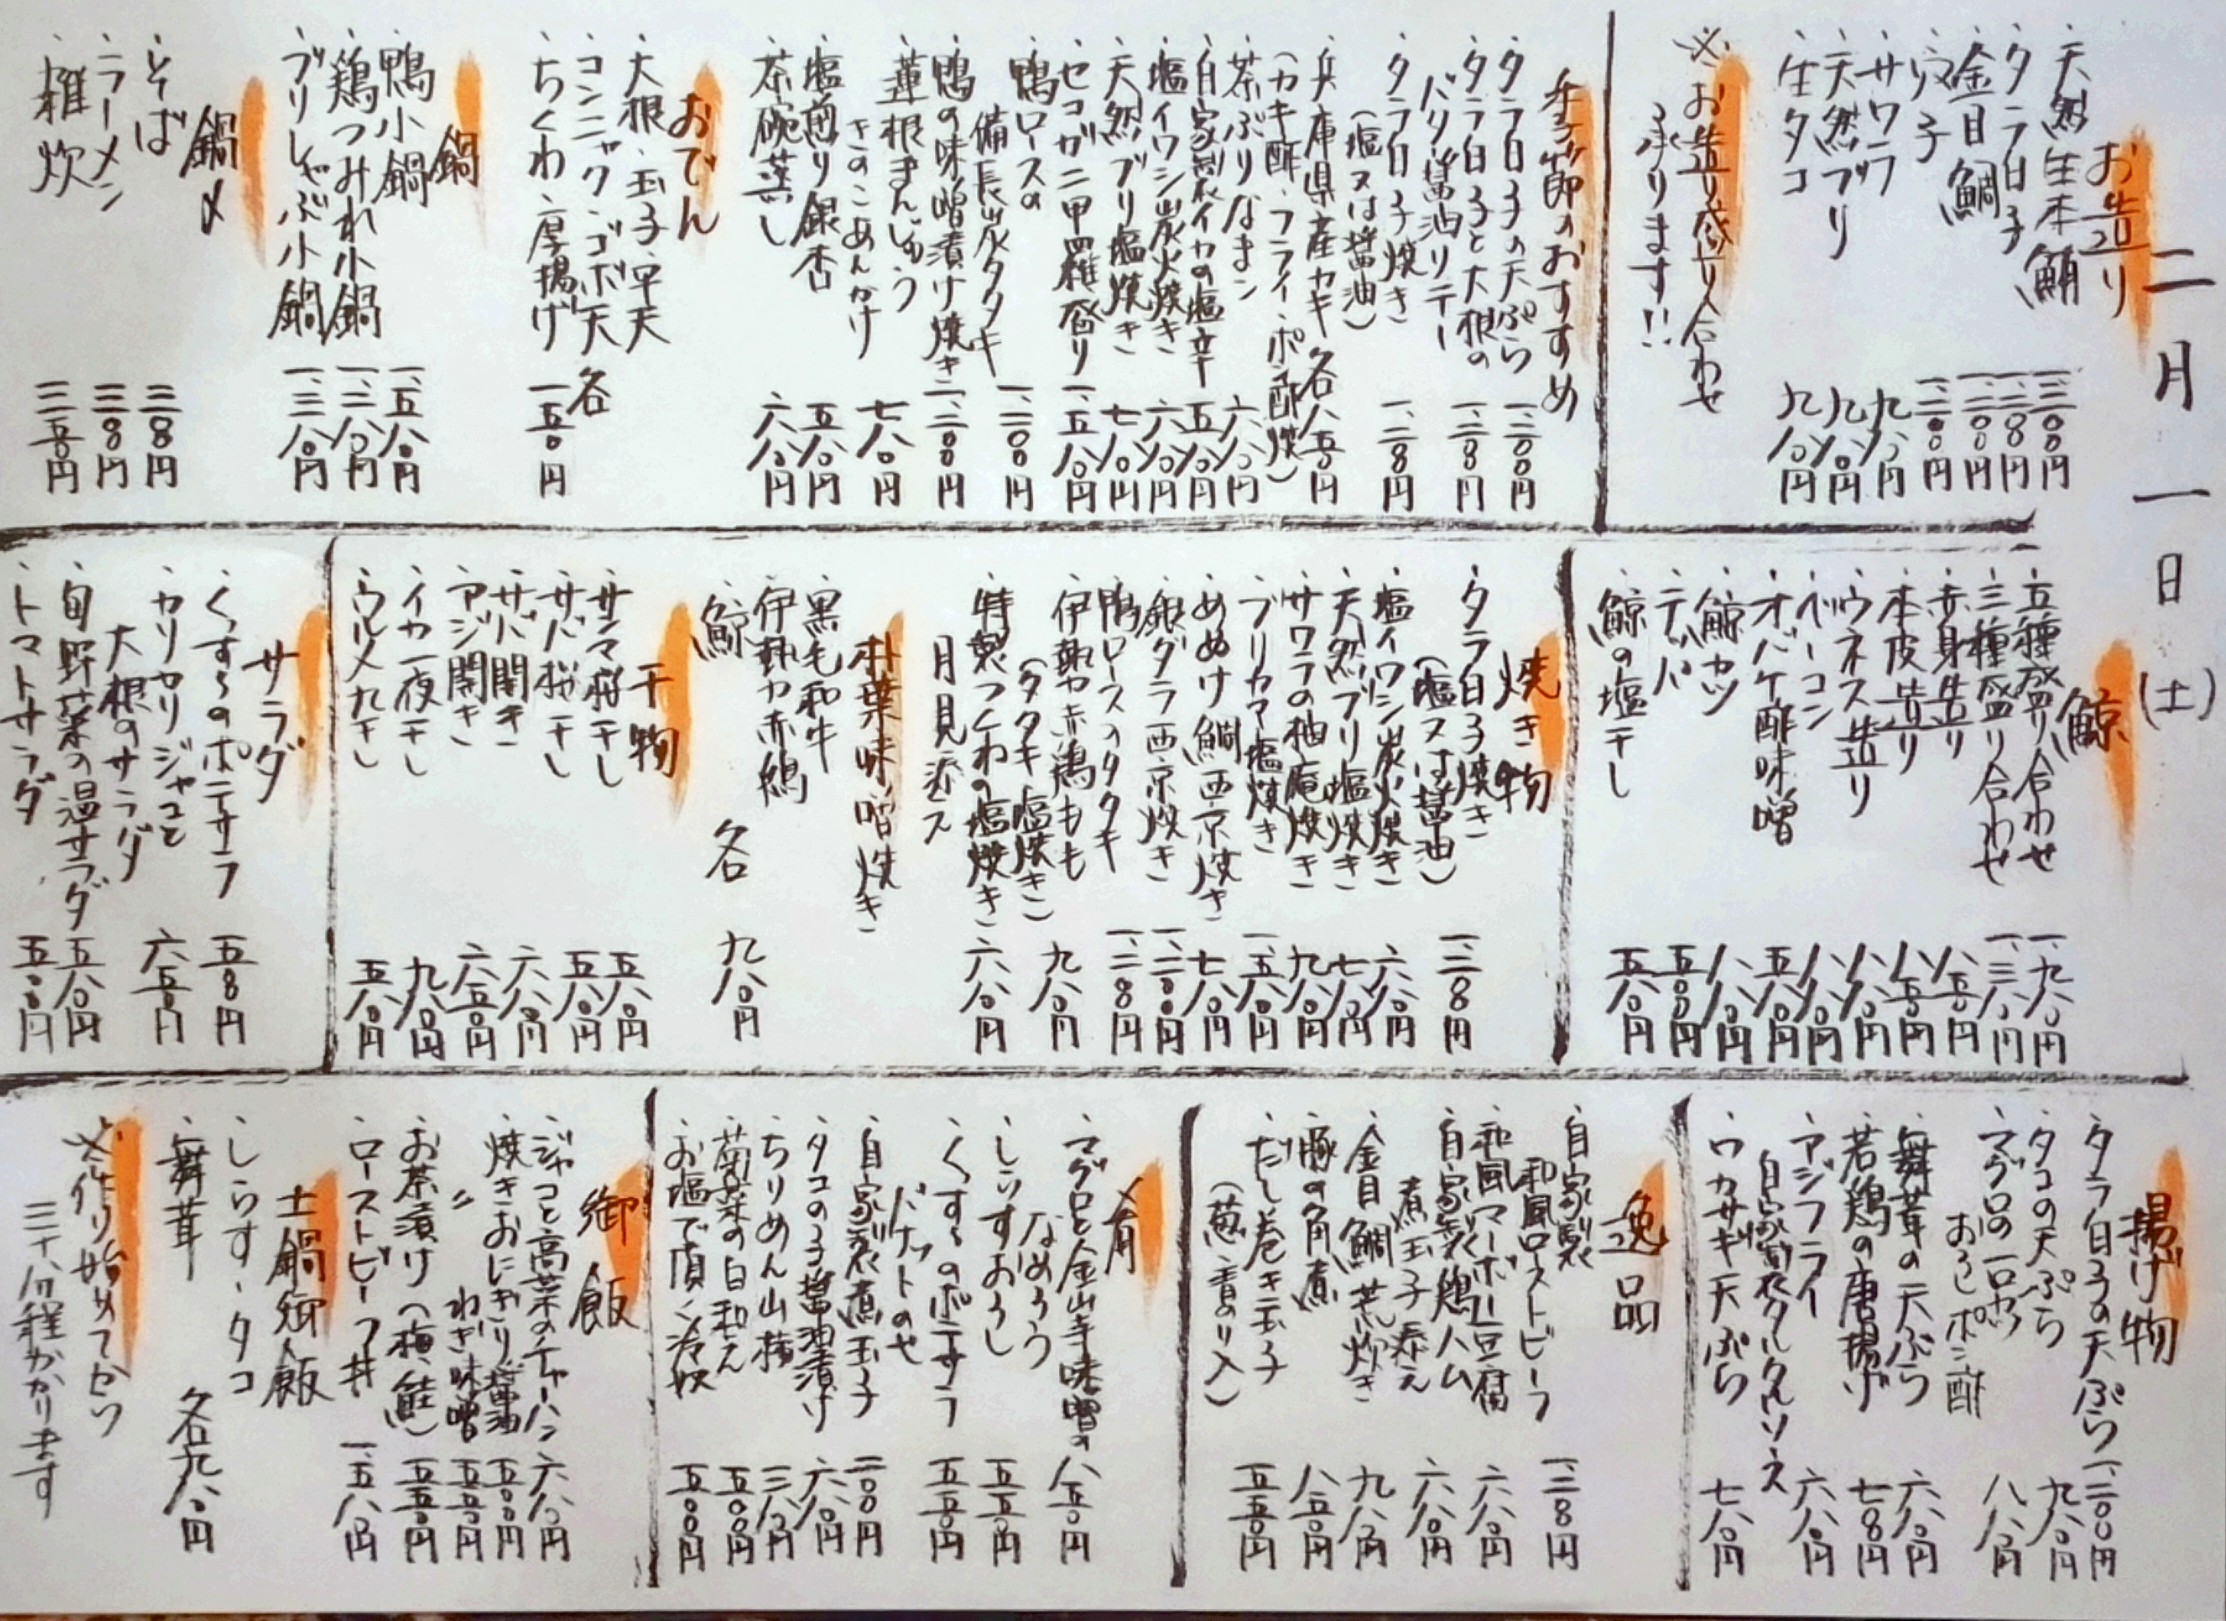 二月一日(土)
お造り
・天然生本鮪 
・タラ白子
・金目鯛
・ﾏﾏﾘ子
・サワラ 九八〇円
・天然ブリ 九八〇円
・生タコ 九八〇円
※お造り盛り合わせ
承ります!!
季節のおすすめ
・タラ白子の天ぷら
・タラ白子と大根の
バター醤油ソテー
・タラ白子焼き
(塩又は醤油)
・兵庫県産カキ 各八五〇円
(カキ酢・フライ・ポン酢焼)
・茶ぶりなまこ 六八〇円
・自家製イカの塩辛 五八〇円
・塩イワシ炭火焼き 六八〇円
・天然ブリ塩焼き 七八〇円
・セコガニ甲羅盛り 一、五八〇円
・鴨ロースの
備長炭タタキ
・鴨の味噌漬け焼き
・蓮根まんじゅう
きのこあんかけ 七八〇円
・塩煎り銀杏 五八〇円
・茶碗蒸し 六八〇円
おでん
・大根・玉子・平天
・コンニャク・ゴボ天 各
・ちくわ・厚揚げ 一五〇円
鍋
・鴨小鍋 一、五八〇円
・鶏つみれ小鍋 一、三八〇円
・ブリしゃぶ小鍋 一、三八〇円
鍋〆
・そば
・ラーメン
・雑炊
鯨
・五種盛り合わせ 一、九八〇円
・三種盛り合わせ 一、三八〇円
・赤身造り 八五〇円
・本皮造り 八五〇円
・ウネス造り 八八〇円
・ベーコン 八八〇円
・オバケ酢味噌 五八〇円
・鯨カツ 八八〇円
・テッパ 五〇〇円
・鯨の塩干し 五八〇円
焼き物
・タラ白子焼き
(塩又は醤油)
・塩イワシ炭火焼き 六八〇円
・天然ブリ塩焼き 七八〇円
・サワラの柚庵焼き 九八〇円
・ブリカマ塩焼き
・めぬけ鯛西京焼き 七八〇円
・銀ダラ西京焼き
・鴨ロースのタタキ
・伊勢赤鶏もも
(タタキ・塩焼き) 九八〇円
・特製つくねの塩焼き 六八〇円
月見添え
朴葉味噌焼き
・黒毛和牛
・伊勢赤鶏
・鯨 各 九八〇円
干物
・サンマ桜干し 五八〇円
・サバ桜干し 五八〇円
・サバ開き 六八〇円
・アジ開き 六五〇円
・イカ一夜干し 九八〇円
・ウルメ丸干し 五八〇円
サラダ
・くずしのポテサラ
・カリカリジャコと
大根のサラダ 六五〇円
・旬野菜の温サラダ 五八〇円
・トマトサラダ
揚げ物
・タラ白子の天ぷら
・タコの天ぷら 九八〇円
・マグロの一口カツ
おろしポン酢 八八〇円
・舞茸の天ぷら 六八〇円
・若鶏の唐揚げ
・アジフライ
自家製タルタルソース 六八〇円
・ワカサギ天ぷら 七八〇円
逸品
・自家製
和風ローストビーフ
・和風マーボー豆腐 六八〇円
・自家製鶏ハム
煮玉子添え 六八〇円
・金目鯛荒炊き 九八〇円
・豚の角煮 八五〇円
・だし巻き玉子
(葱・青のり入) 五五〇円
肴
・マグロと金山寺味噌の
なめろう 八五〇円
・しらすおろし 五五〇円
・くずしのポテサラ
・自家製煮玉子
バケットのせ
・タコの子醤油漬け 六八〇円
・ちりめん山椒 三八〇円
・菊菜の白和え 五〇〇円
・お塩で頂く冷奴 五〇〇円
御飯
・ジャコと高菜のチャーハン 六八〇円
・焼きおにぎり醤油 五〇〇円
〃 ねぎ味噌 五五〇円
・お茶漬け(梅、鮭) 五五〇円
・ローストビーフ丼 一、五八〇円
土鍋御飯
・しらす・タコ
・舞茸 各九八〇円
※作り始めてから
三十八分程かかります